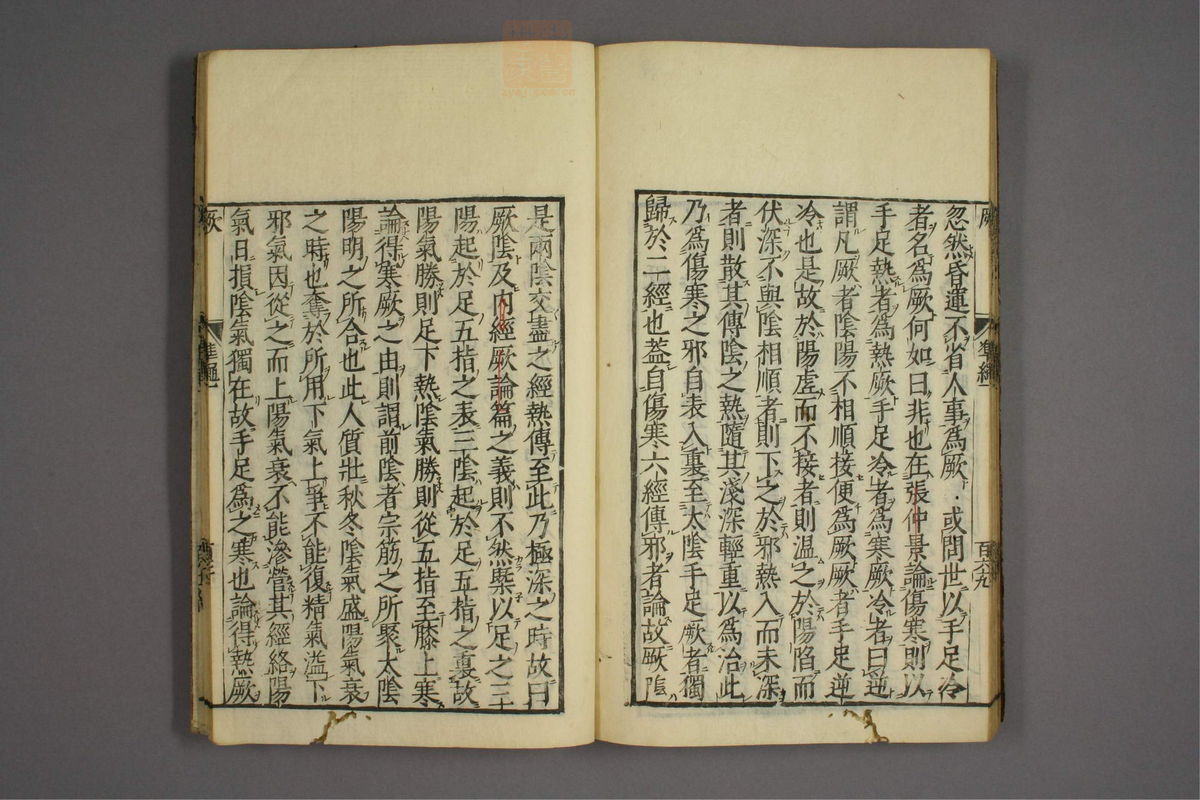 厥
準繩
百六九
忽然昏運不省人事爲厥．或問世以手足冷
者名爲厥何如曰非也在張仲景論傷寒則以
手足熱者爲熱厥手足冷者爲寒厥冷者曰逆
謂凡厥者陰陽不相順接便爲厥厥者手足逆
冷也是故於陽虛而不接者則温之於陽陷而
伏深不與陰相順者則下之於邪熱入而未深
者則散其傳陰之熱隨其淺深輕重以爲治此
乃爲傷寒之邪自表入裏至太陰手足厥者獨
歸於二經也蓋自傷寒六經傳邪者論故厥陰
是兩陰交盡之經熱傳至此乃極深之時故曰
厥陰及内經厥論篇之義則不然槩以足之三
陽起於足五指之表三陰起於足五指之裏故
陽氣勝則足下熱陰氣勝則從五指至膝上寒
論得寒厥之由則謂前陰者宗筋之所聚太陰
陽明之所合也此人質壯秋冬陰氣盛陽氣衰
之時也奪於所用下氣上爭不能復精氣溢下
邪氣因從之而上陽氣衰不能滲營其經絡陽
氣日損陰氣獨在故手足爲之寒也論得熱厥
厥
準繩